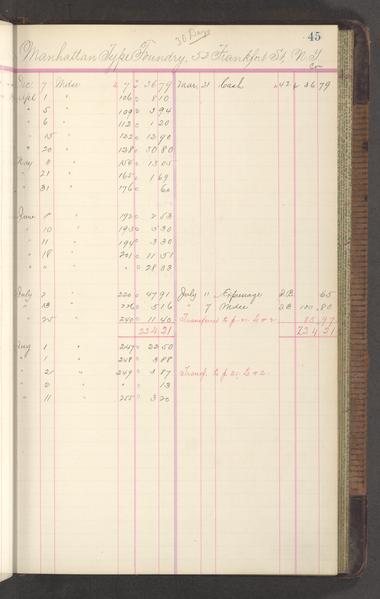 45
30 Days
Manhattan Type Foundry, 52 Frankfort St. N.Y.
Cr
Dec 7 Mdse 7 36 79 Mar 31 Cash 42 36 79
Sept 1 " 106 8 10
" 5 " 109 3 94
" 6 " 112 1 20
" 15 " 132 12 90
" 20 " 138 30 80
" 8 " 159 13 05
" 21 " 165 1 69
" 31 " 176 60
June 8 " 192 2 53
" 10 " 193 3 30
" 11 " 194 3 30
" 18 " 201 11 51
" " " 28 03
July 2 " 220 47 91 July 11 Expensage D.B. 65
" 13 " 226 5 16 " 7 Mdse D.B. 80
" 25 " 240 11 40 Transferred to p. 21. L. 2. 97
224 21 224 21
Aug 1 " 247 22 50
" 1 " 248 3 88
" 21 " 249 3 87 Transf. to p 21. L. 2.
" 2 " " 13
" 11 " 255 3 20